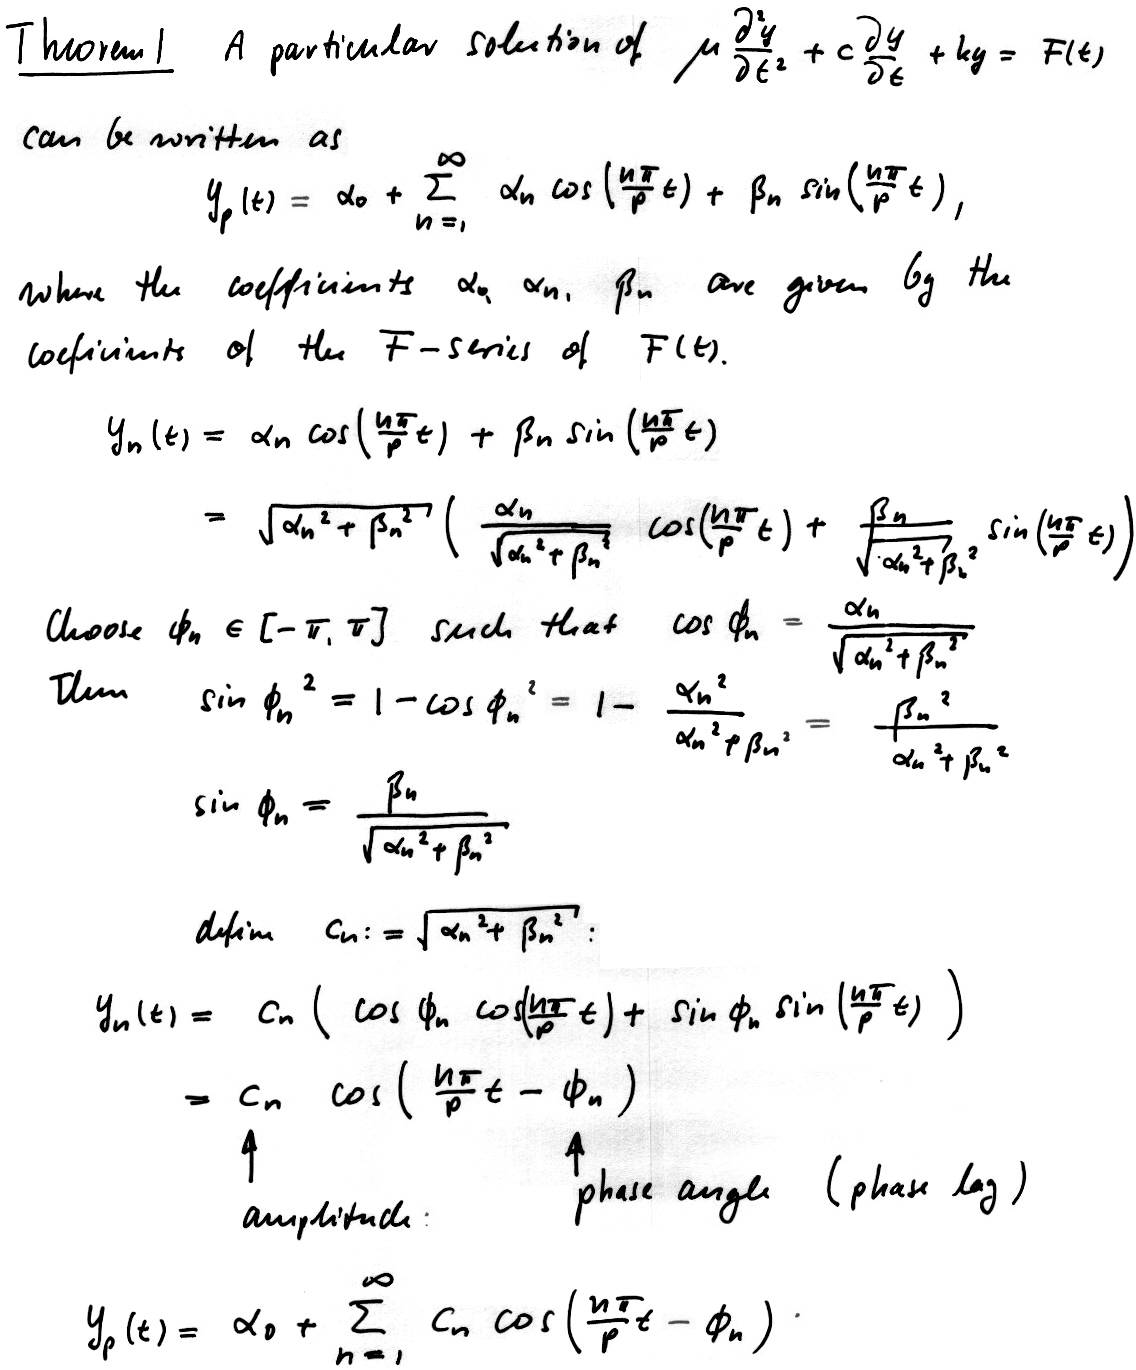 Theorem 1 A particular solution of μ ∂²y/∂t² + c ∂y/∂t + ky = F(t)
can be written as
y_p(t) = α₀ + Σ_{n=1}^{∞} α_n cos(nπ/p t) + β_n sin(nπ/p t),
where the coefficients α₀, α_n, β_n are given by the
coeficients of the F-series of F(t).
y_n(t) = α_n cos(nπ/p t) + β_n sin(nπ/p t)
= √(α_n² + β_n²) ( α_n/√(α_n² + β_n²) cos(nπ/p t) + β_n/√(α_n² + β_n²) sin(nπ/p t) )
Choose ϕ_n ∈ [-π, π] such that cos ϕ_n = α_n/√(α_n² + β_n²)
Then sin ϕ_n² = 1 - cos ϕ_n² = 1 - α_n²/(α_n² + β_n²) = β_n²/(α_n² + β_n²)
sin ϕ_n = β_n/√(α_n² + β_n²)
define c_n := √(α_n² + β_n²) :
y_n(t) = c_n ( cos ϕ_n cos(nπ/p t) + sin ϕ_n sin(nπ/p t) )
= c_n cos( nπ/p t - ϕ_n )
↑ ↑
phase angle (phase lag)
amplitude:
y_p(t) = α₀ + Σ_{n=1}^{∞} c_n cos( nπ/p t - ϕ_n ) .